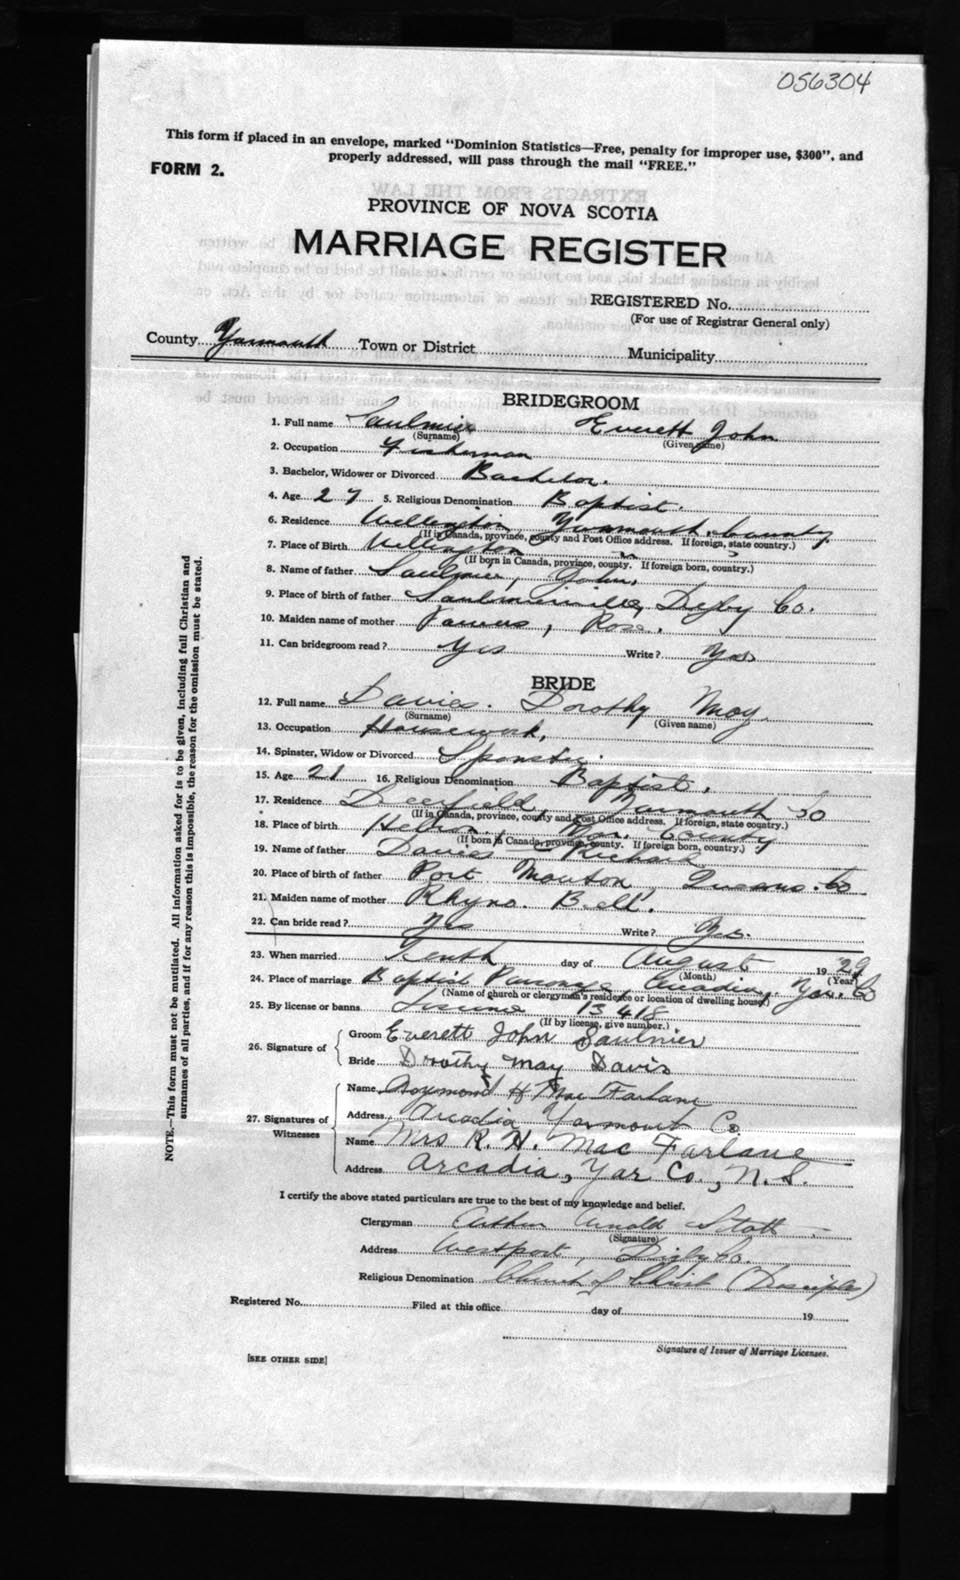 056304
This form if placed in an envelope, marked "Dominion Statistics—Free, penalty for improper use, $300", and
properly addressed, will pass through the mail "FREE."
FORM 2.
PROVINCE OF NOVA SCOTIA
MARRIAGE REGISTER
REGISTERED No.
(For use of Registrar General only)
County Yarmouth Town or District Municipality
BRIDEGROOM
1. Full name Saulnier Everett John
(Surname) (Given name)
2. Occupation Fisherman
3. Bachelor, Widower or Divorced Bachelor.
4. Age 27 5. Religious Denomination Baptist.
6. Residence Wellington Yarmouth County
(If in Canada, province, county and Post Office address. If foreign, state country.)
7. Place of Birth Wellington " "
(If born in Canada, province, county. If foreign born, country.)
8. Name of father Saulnier, John.
9. Place of birth of father Saulnierville, Digby Co.
10. Maiden name of mother Rose.
11. Can bridegroom read? Yes Write? Yes
BRIDE
12. Full name Davies. Dorothy May
(Surname) (Given name)
13. Occupation Housework,
14. Spinster, Widow or Divorced Spinster.
15. Age 21 16. Religious Denomination Baptist.
17. Residence Deerfield, Yarmouth Co
(If in Canada, province, county and Post Office address. If foreign, state country.)
18. Place of birth Hebron, Yar. County
(If born in Canada, province, county. If foreign born, country.)
19. Name of father Davies Richard
20. Place of birth of father Port Mouton, Queens Co
21. Maiden name of mother Rhyno. Bell.
22. Can bride read? Yes Write? Yes.
23. When married Tenth day of August 1929
(Month) (Year)
24. Place of marriage Baptist Parsonage, Arcadia, Yar. Co
(Name of church or clergyman's residence or location of dwelling house)
25. By license or banns License 13418
(If by license, give number.)
26. Signature of Groom Everett John Saulnier
Bride Dorothy May Davis
27. Signatures of Witnesses
Name Raymond H MacFarlane
Address Arcadia Yarmouth Co
Name Mrs R. H. MacFarlane
Address Arcadia, Yar Co., N.S.
I certify the above stated particulars are true to the best of my knowledge and belief.
Clergyman Arthur Arnold
(Signature)
Address Westport, Digby Co.
Religious Denomination Church of Christ (Disciples)
Registered No. Filed at this office day of 19
Signature of Issuer of Marriage Licenses.
[SEE OTHER SIDE]
NOTE.—This form must not be mutilated. All information asked for is to be given, including full Christian and
surnames of all parties, and if for any reason this is impossible, the reason for the omission must be stated.